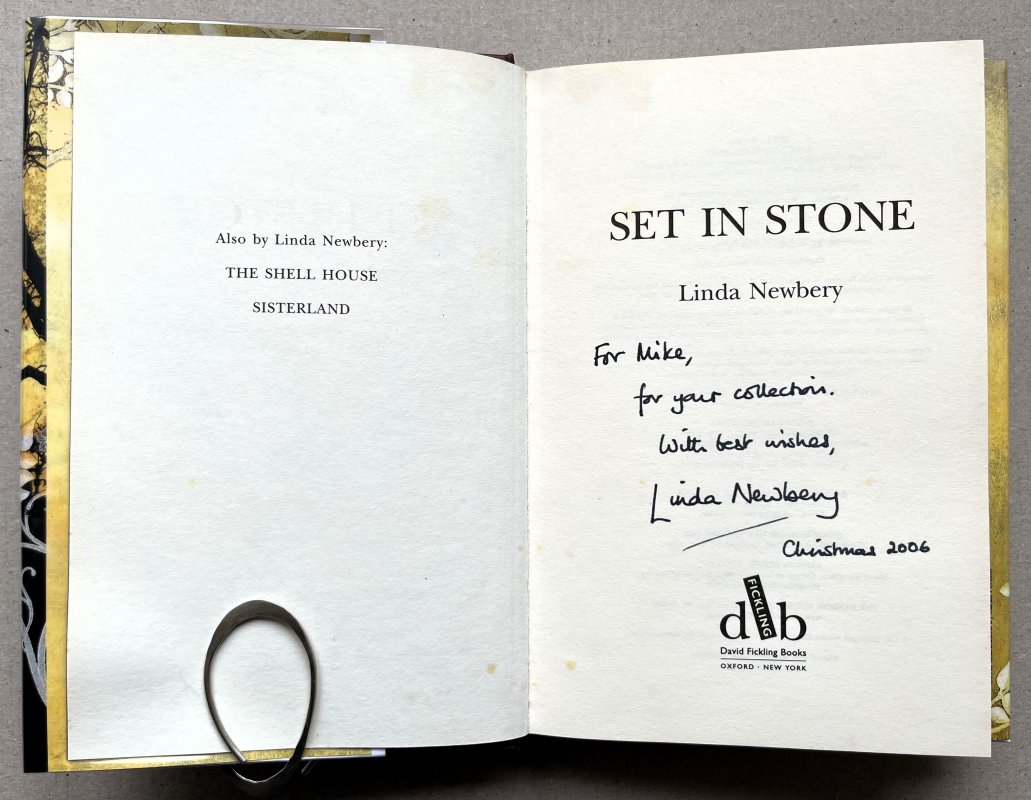 Also by Linda Newbery:
THE SHELL HOUSE
SISTERLAND
SET IN STONE
Linda Newbery
For Mike,
for your collection.
With best wishes,
Linda Newbery
Christmas 2006
d FICKLING b
David Fickling Books
OXFORD · NEW YORK